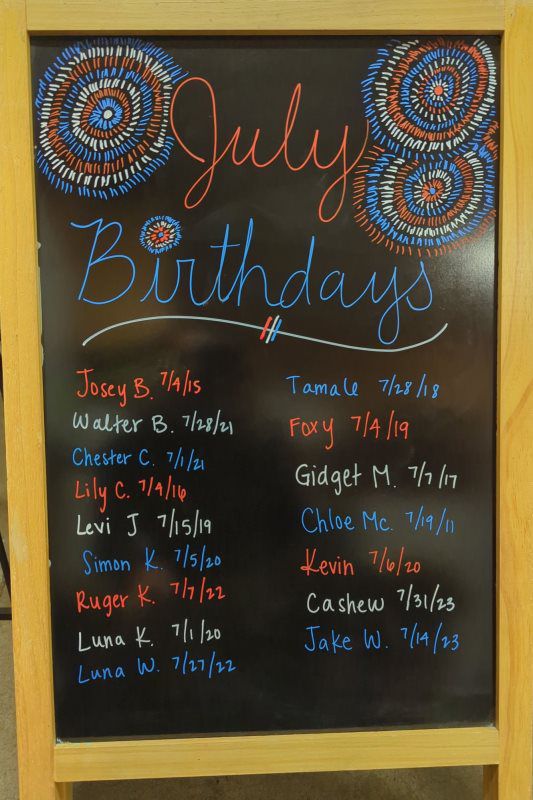 July
Birthdays
Josey B. 7/4/15
Walter B. 7/28/21
Chester C. 7/1/21
Lily C. 7/4/16
Levi J 7/15/19
Simon K. 7/5/20
Ruger K. 7/7/22
Luna K. 7/1/20
Luna W. 7/27/22
Tamale 7/28/18
Foxy 7/4/19
Gidget M. 7/7/17
Chloe Mc. 7/19/11
Kevin 7/6/20
Cashew 7/31/23
Jake W. 7/14/23